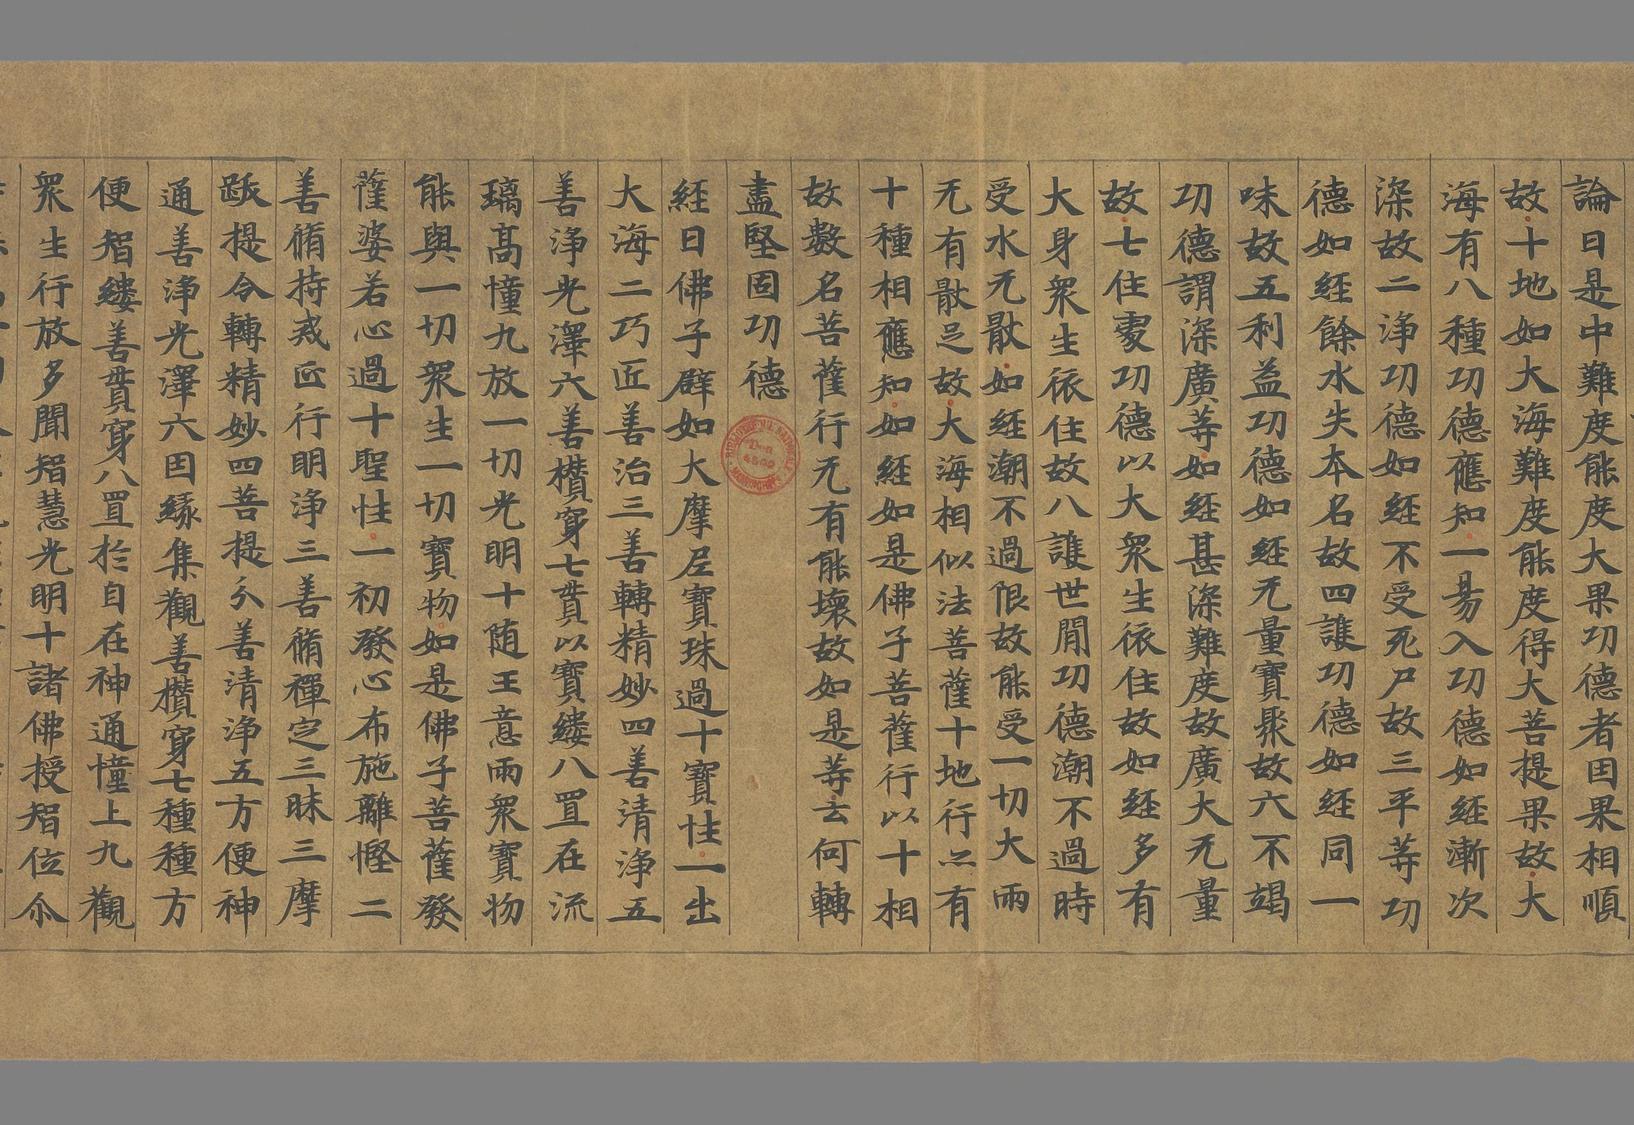 論曰是中難度能度大果功德者因果相順
故十地如大海難度能度得大菩提果故大
海有八種功德應知一易入功德如經漸次
深故二淨功德如經不受死尸故三平等功
德如經餘水失本名故四護功德如經同一
味故五利益功德如經无量寶聚故六不竭
功德謂深廣等如經甚深難度故廣大无量
故七住處功德以大衆生依住故如經多有
大身衆生依住故八護世間功德潮不過時
受水无猒如經潮不過限故能受一切大雨
无有猒足故大海相似法菩薩十地行亦有
十種相應知如經如是佛子菩薩行以十相
故數名菩薩行无有能壞故如是等云何轉
盡堅固功德
經曰佛子辟如大摩尼寶珠過十寶性一出
大海二巧匠善治三善轉精妙四善清淨五
善淨光澤六善櫕穿七貫以寶縷八置在流
璃高憧九放一切光明十随王意雨衆寶物
能與一切衆生一切寶物如是佛子菩薩發
薩婆若心過十聖性一初發心布施離慳二
善脩持戒匠行明淨三善脩禪定三昧三摩
跋提令轉精妙四菩提分善清淨五方便神
通善淨光澤六因緣集觀善櫕穿七種種方
便智縷善貫穿八置於自在神通憧上九觀
衆生行放多聞智慧光明十諸佛授智位尒